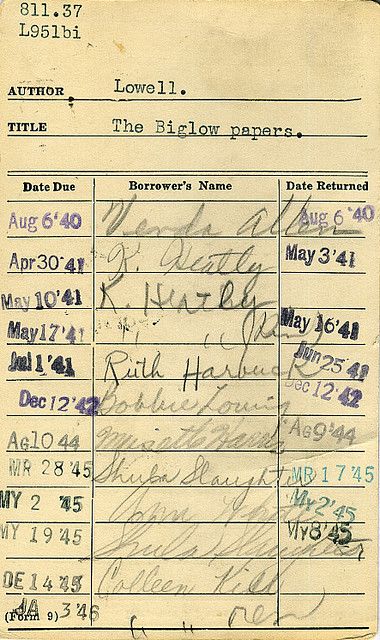 811.37
L951bi
AUTHOR Lowell.
TITLE The Biglow papers.
Date Due Borrower's Name Date Returned
Aug 6 '40 Allen Aug 6 '40
Apr 30 '41 K. Heatly May 3 '41
May 10 '41 K. Heatley
May 17 '41 " " (Ren) May 16 '41
Jul 1 '41 Ruth Harbuck Jun 25 '41
Dec 12 '42 Bobbie Loving Dec 12 '42
Ag 10 44 Ag 9 '44
MR 28 '45 Sheila Slaughter MR 17 '45
MY 2 '45 My 2 '45
MY 19 45 Sheila Slaughter My 8 '45
DE 14 45 Colleen
JA 3 '46 " " ren
(Form 9)